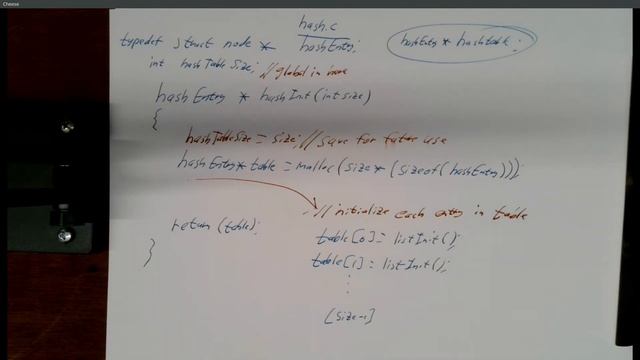 Cheese
hash.c
typedef struct node * hashEntry;
hashEntry * hashtable;
int hashTableSize; // global in here
hashEntry * hashInit(int size)
{
hashTableSize = size; // save for future use
hashEntry* table = malloc(size*(sizeof(hashEntry)));
// initialize each entry in table
return (table);
table[0] = listInit();
table[1] = listInit();
}
⋮
[size-1]